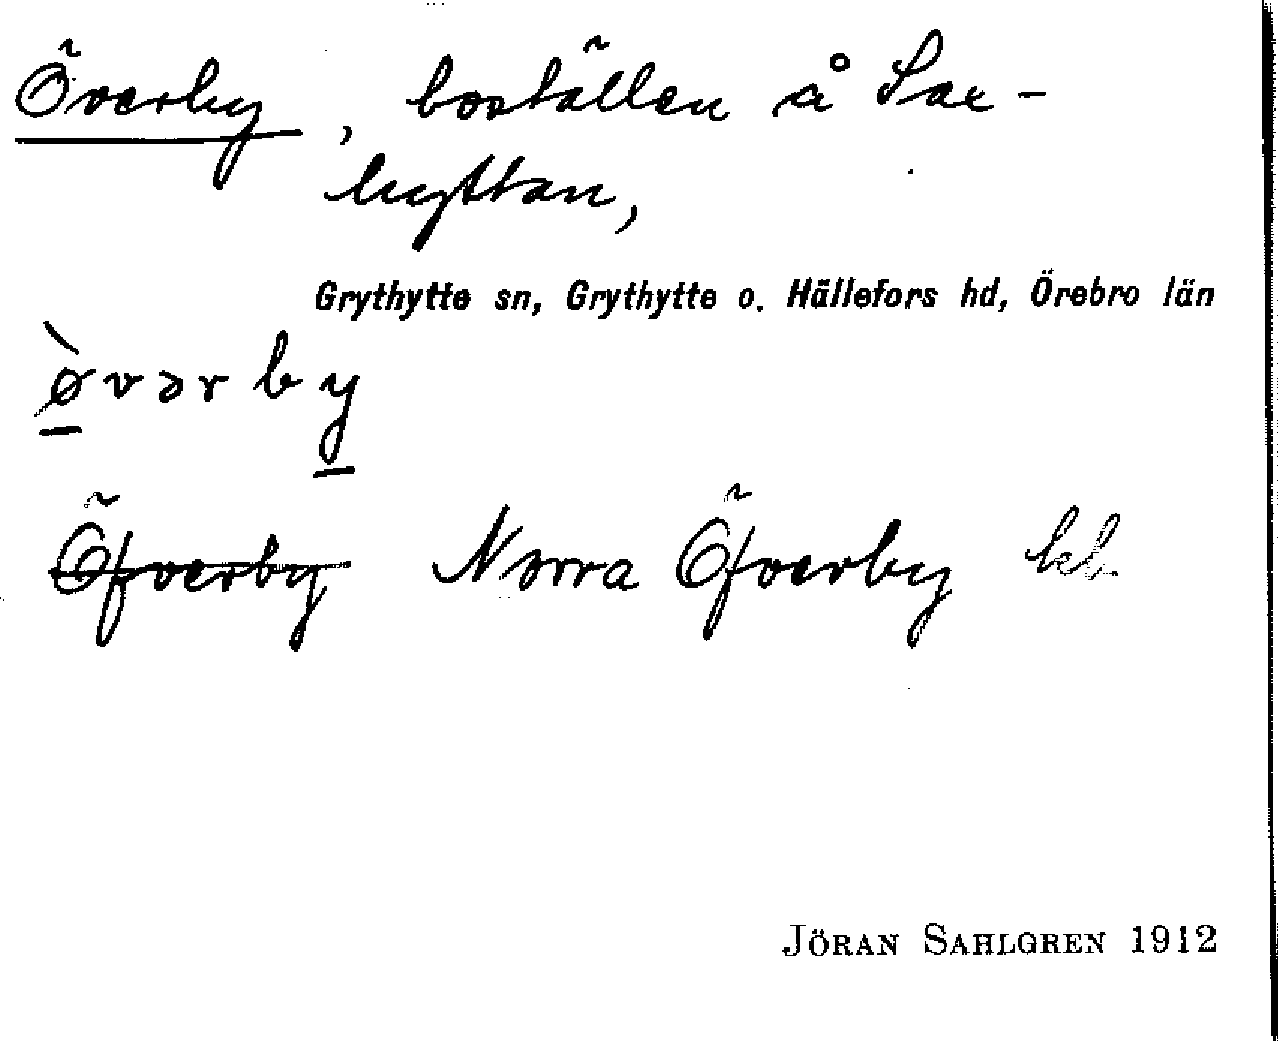 Överby, boställen å Sax-
hyttan,
Grythytte sn, Grythytte o. Hällefors hd, Örebro län
ø̀vərby
Öfverby Norra Öfverby kb
JÖRAN SAHLGREN 1912